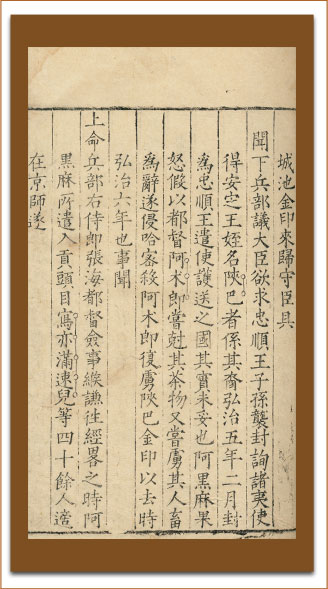 城池金印來歸守臣具
聞下兵部議大臣欲求忠順王子孫襲封詢諸夷使
得安定王姪名陜巴者係其裔弘治五年二月封
為忠順王遣使護送之國其實未妥也阿黑麻果
怒假以都督阿木郎嘗尅其茶物又嘗虜其人畜
為辭遂侵哈密殺阿木郎復虜陜巴金印以去時
弘治六年也事聞
上命兵部右侍郎張海都督僉事緱謙徃經畧之時阿
黑麻所遣入貢頭目寫亦滿速兒等四十餘人適
在京師遂